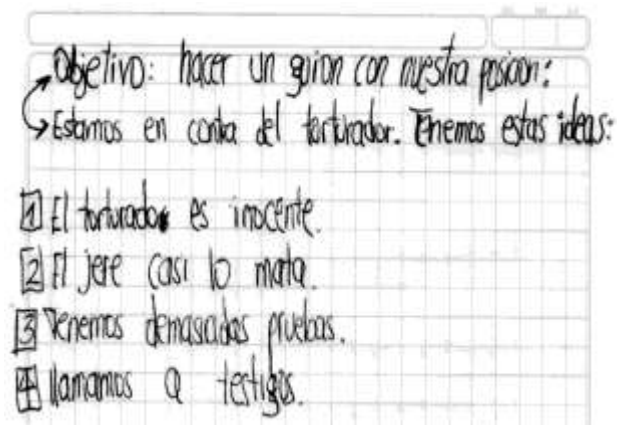 Objetivo: hacer un guion con nuestra posicion:
Estamos en contra del torturador. Tenemos estas ideas:
1 El torturador es inocente.
2 El jefe casi lo mata.
3 Tenemos demasiadas pruebas.
4 llamamos a testigos.